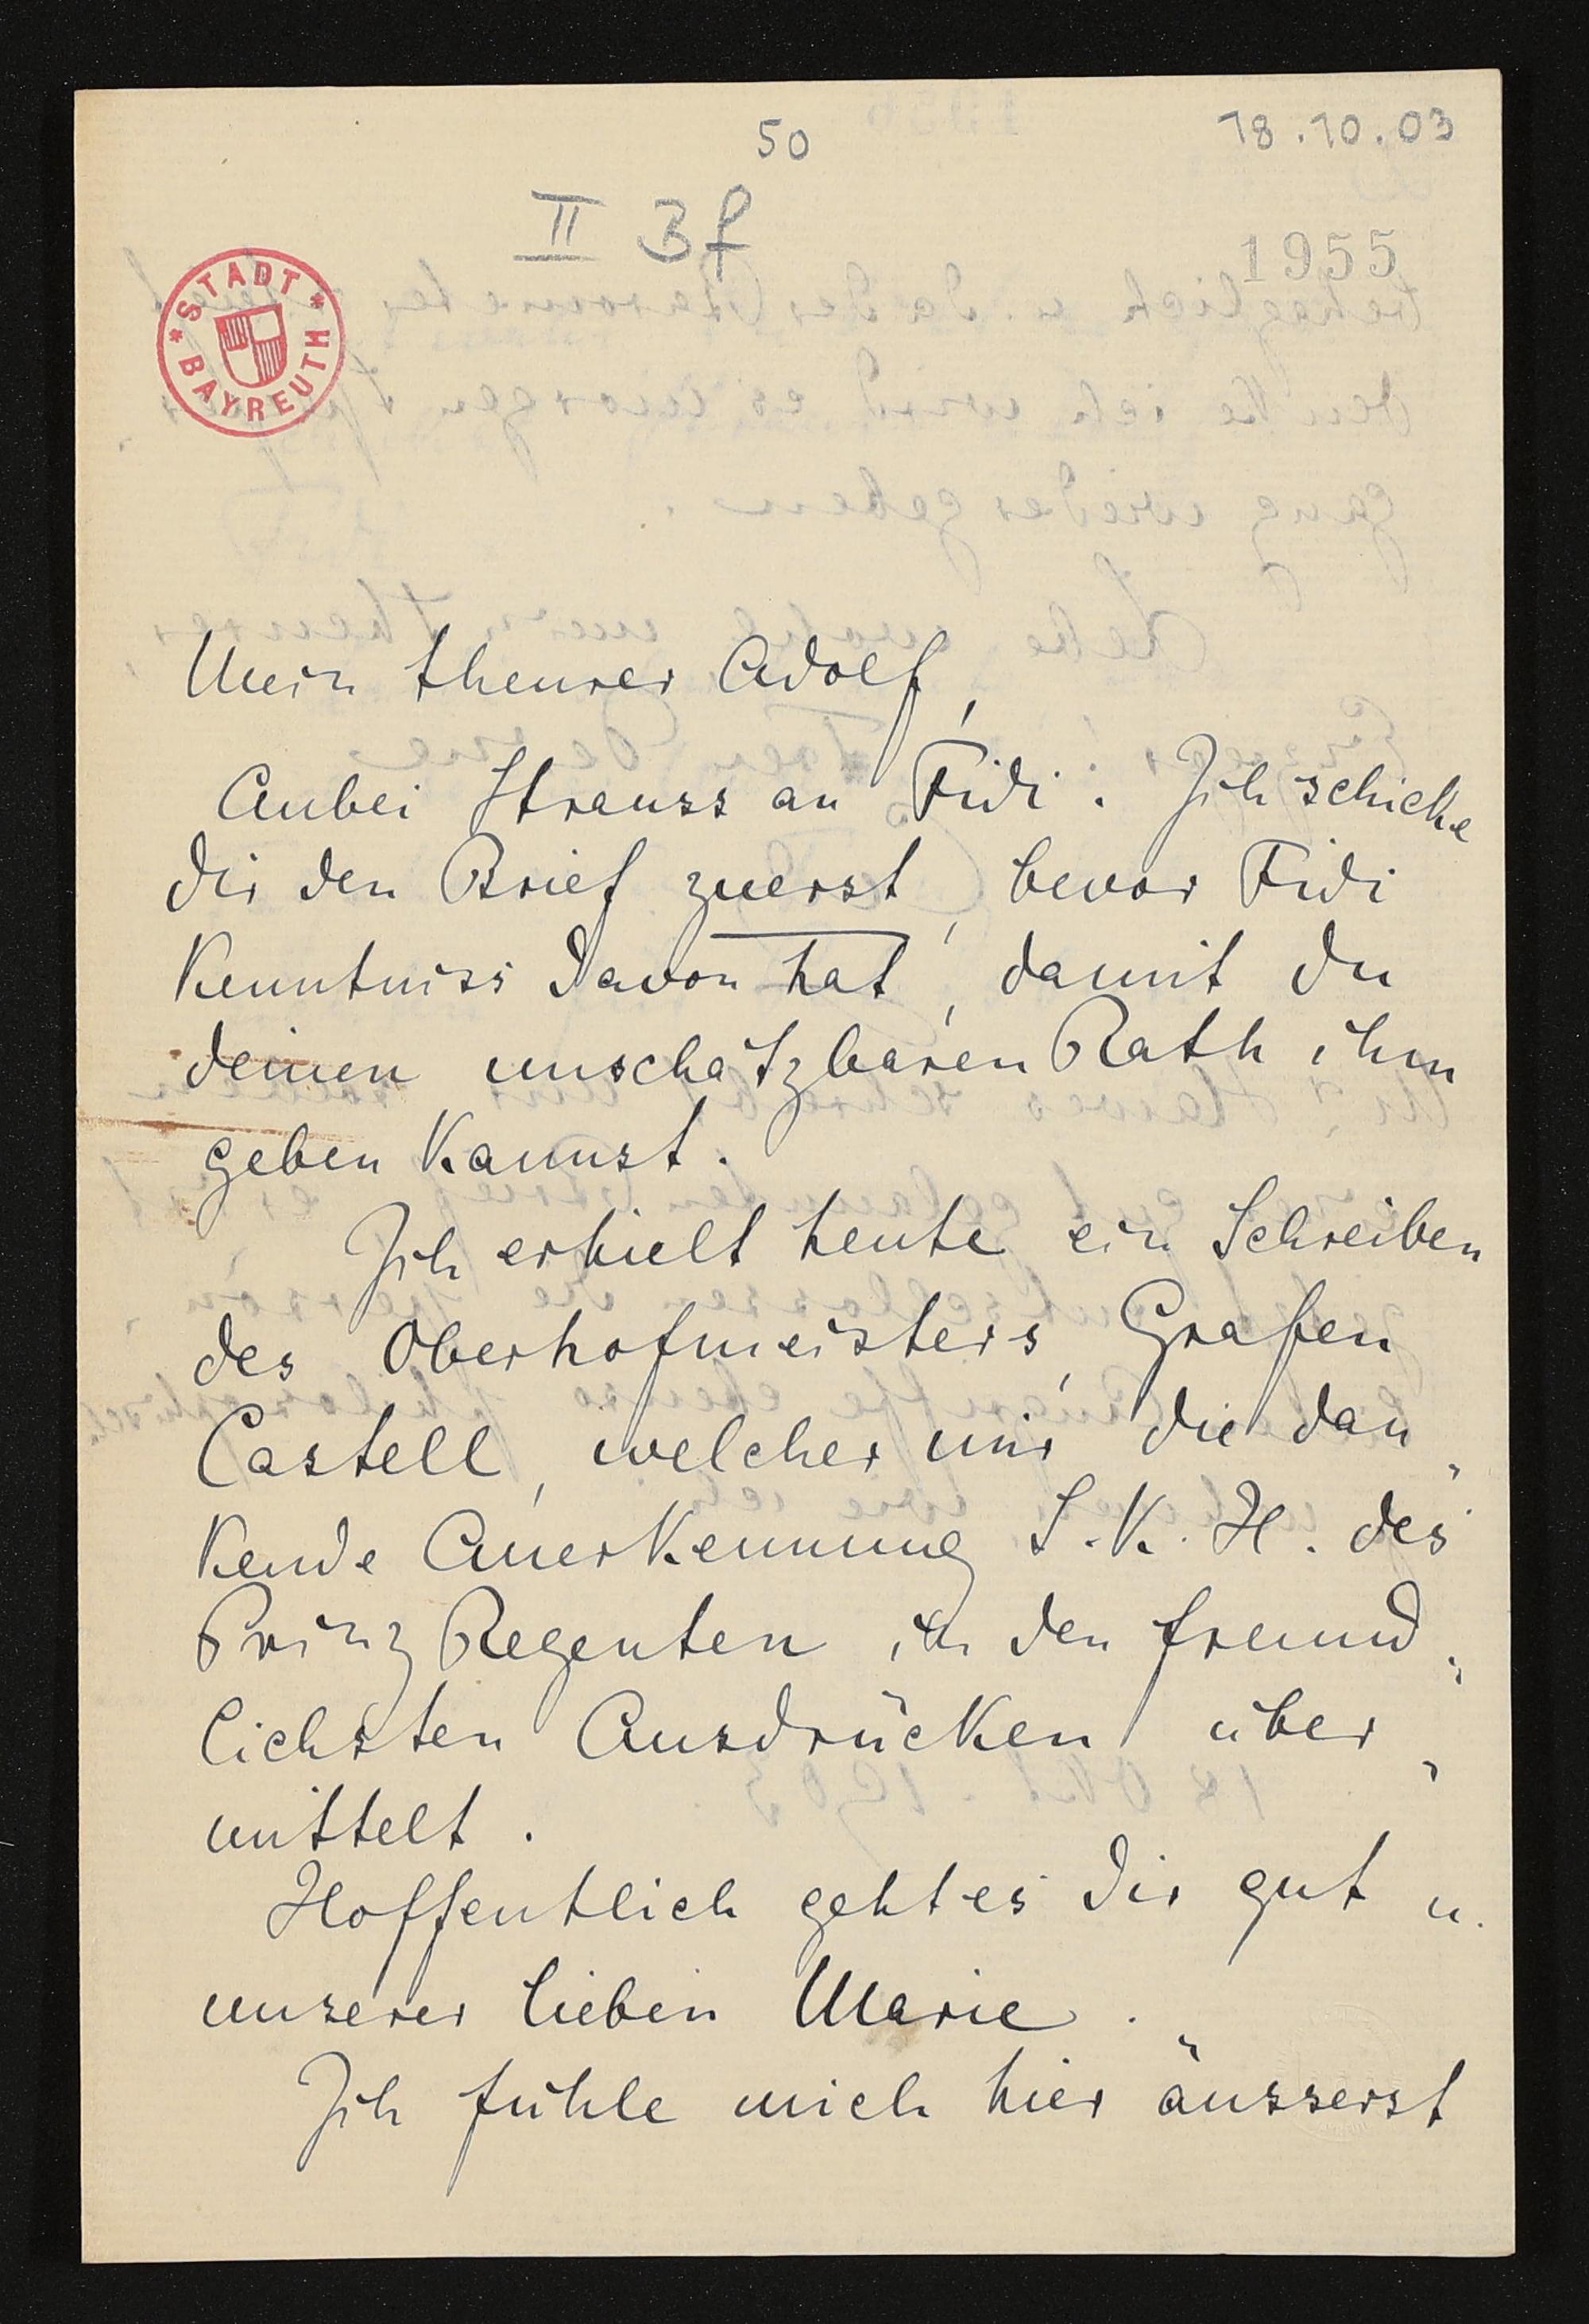 50
18.10.03
II 3f
1955
* STADT * BAYREUTH
Mein theurer Adolf,
Anbei Strauss an Fidi. Ich schicke
dir den Brief zuerst, bevor Fidi
Kenntniss davon hat, damit du
deinen unschätzbaren Rath ihm
geben kannst.
Ich erhielt heute ein Schreiben
des Oberhofmeisters, Grafen
Castell, welcher mir die dan„
kende Anerkennung S. K. H. des
Prinz Regenten in den freund„
lichsten Ausdrücken über„
mittelt.
Hoffentlich geht es dir gut u.
unserer lieben Marie.
Ich fühle mich hier äusserst